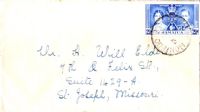 JAMAICA
Mr. H. Will Elde
7th & Felix Str.,
Suite 1429-A
St. Joseph, Missouri.